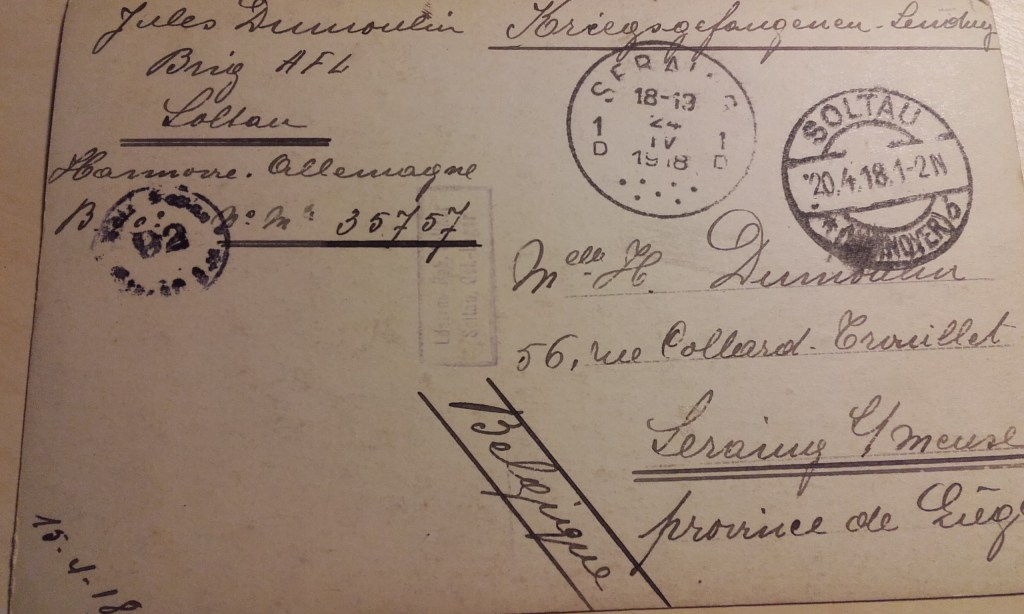 Jules Dumoulin
Brig AFL
Soltau
Hannovre. Allemagne
B
92
No Mle 35757
Kriegsgefangenen-Sendung
SERAING
18-19
24
IV
1918
1
D
1
D
SOLTAU
*20.4.18.1-2N
*(HANNOVER)b
Melle H. Dumoulin
56, rue Collard-Trouillet
Seraing S/meuse
province de Liège
Belgique
15-4-18